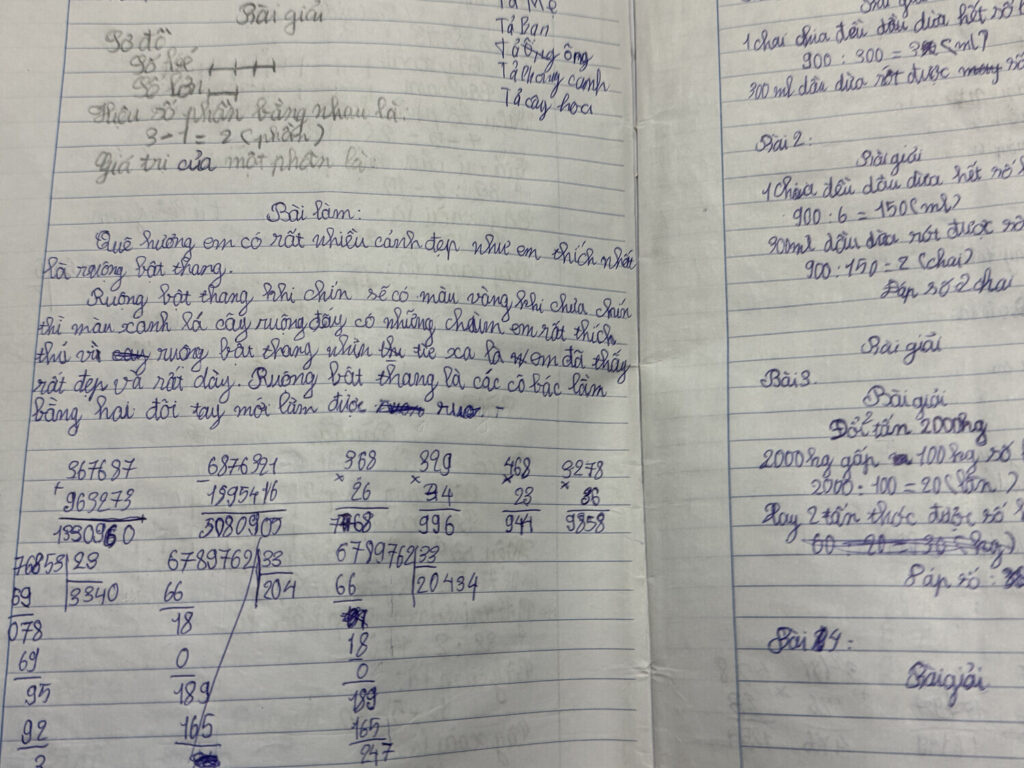 Bài giải
Sơ đồ
Số bé
Số lớn
Hiệu số phần bằng nhau là:
3 - 1 = 2 (phần)
Giá trị của một phần là:
Tả Mẹ
Tả Bạn
Tả Ông
Tả Phong cảnh
Tả cây hoa
Bài làm:
Quê hương em có rất nhiều cảnh đẹp như em thích nhất
là ruộng bật thang.
Ruộng bật thang khi chín sẽ có màu vàng khi chưa chín
thì màu xanh lá cây ruộng đây có những em rất thích
thú vì ruộng bật thang nhìn từ xa là em đã thấy
rất đẹp và rất dày. Ruộng bật thang là các cô bác làm
bằng hai đôi tay mới làm được
367687 6876321 368 329 468 3278
+ 963273 - 1395416 × 26 × 34 × 23 ×
1330960 3080900 996 9358
76853 23 6789762 33 6789762 33
69 3340 66 204 66 20434
078 18
69 0 18
95 189 0
92 165 189
3 165
247
1 chai chứa đều dầu dừa hết số
900 : 300 = 3 (ml)
300 ml dầu dừa rót được số
Bài 2:
Bài giải
1 chứa đều dầu dừa hết số
900 : 6 = 150 (ml)
900ml dầu dừa rót được số
900 : 150 = 2 (chai)
Đáp số 2 chai
Bài giải
Bài 3.
Bài giải
Đổi tấn 2000kg
2000kg gấp 100kg số
2000 : 100 = 20 (lần)
Xay 2 tấn thóc được số
60 - 20 = 30 (kg)
Đáp số:
Bài 4:
Bài giải